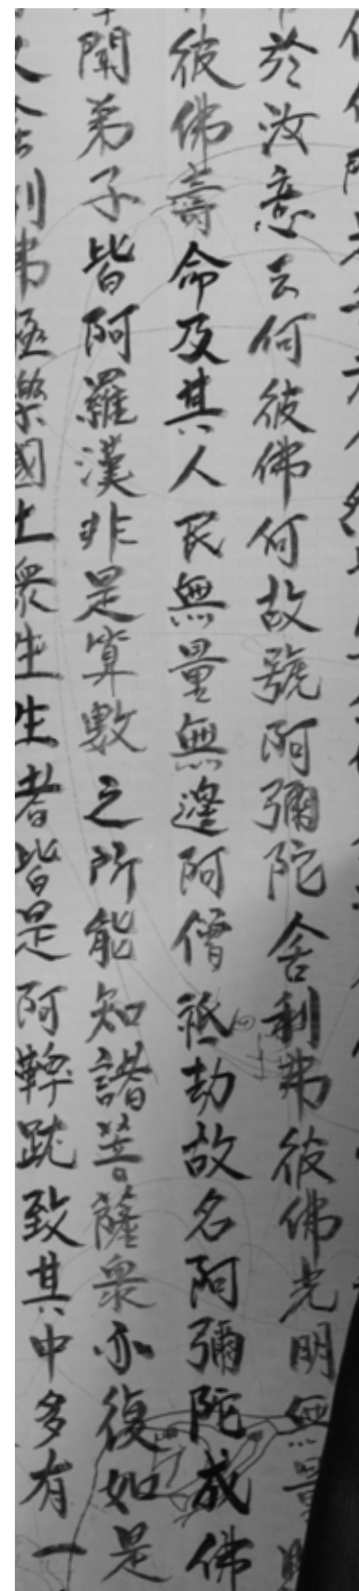 於汝意云何彼佛何故號阿彌陀舍利弗彼佛光明無量
彼佛壽命及其人民無量無邊阿僧祗劫故名阿彌陀成佛
聞弟子皆阿羅漢非是算數之所能知諸菩薩眾亦復如是
利弗極樂國土眾生生者皆是阿鞞跋致其中多有一